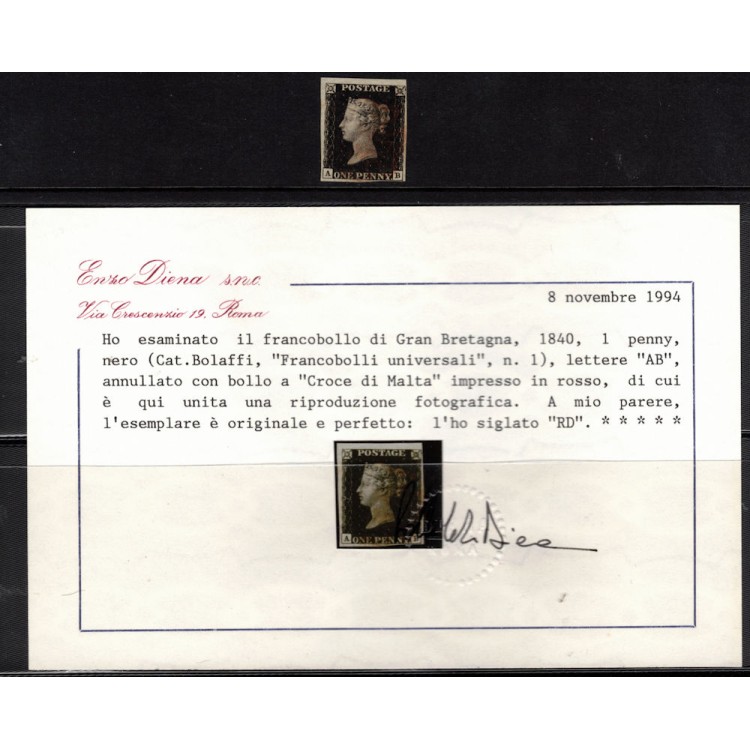 POSTAGE
A ONE PENNY B
Enzo Diena s.n.c.
Via Crescenzio 19. Roma
8 novembre 1994
Ho esaminato il francobollo di Gran Bretagna, 1840, 1 penny,
nero (Cat.Bolaffi, "Francobolli universali", n. 1), lettere "AB",
annullato con bollo a "Croce di Malta" impresso in rosso, di cui
è qui unita una riproduzione fotografica. A mio parere,
l'esemplare è originale e perfetto: l'ho siglato "RD". * * * * *
POSTAGE
A ONE PENNY B